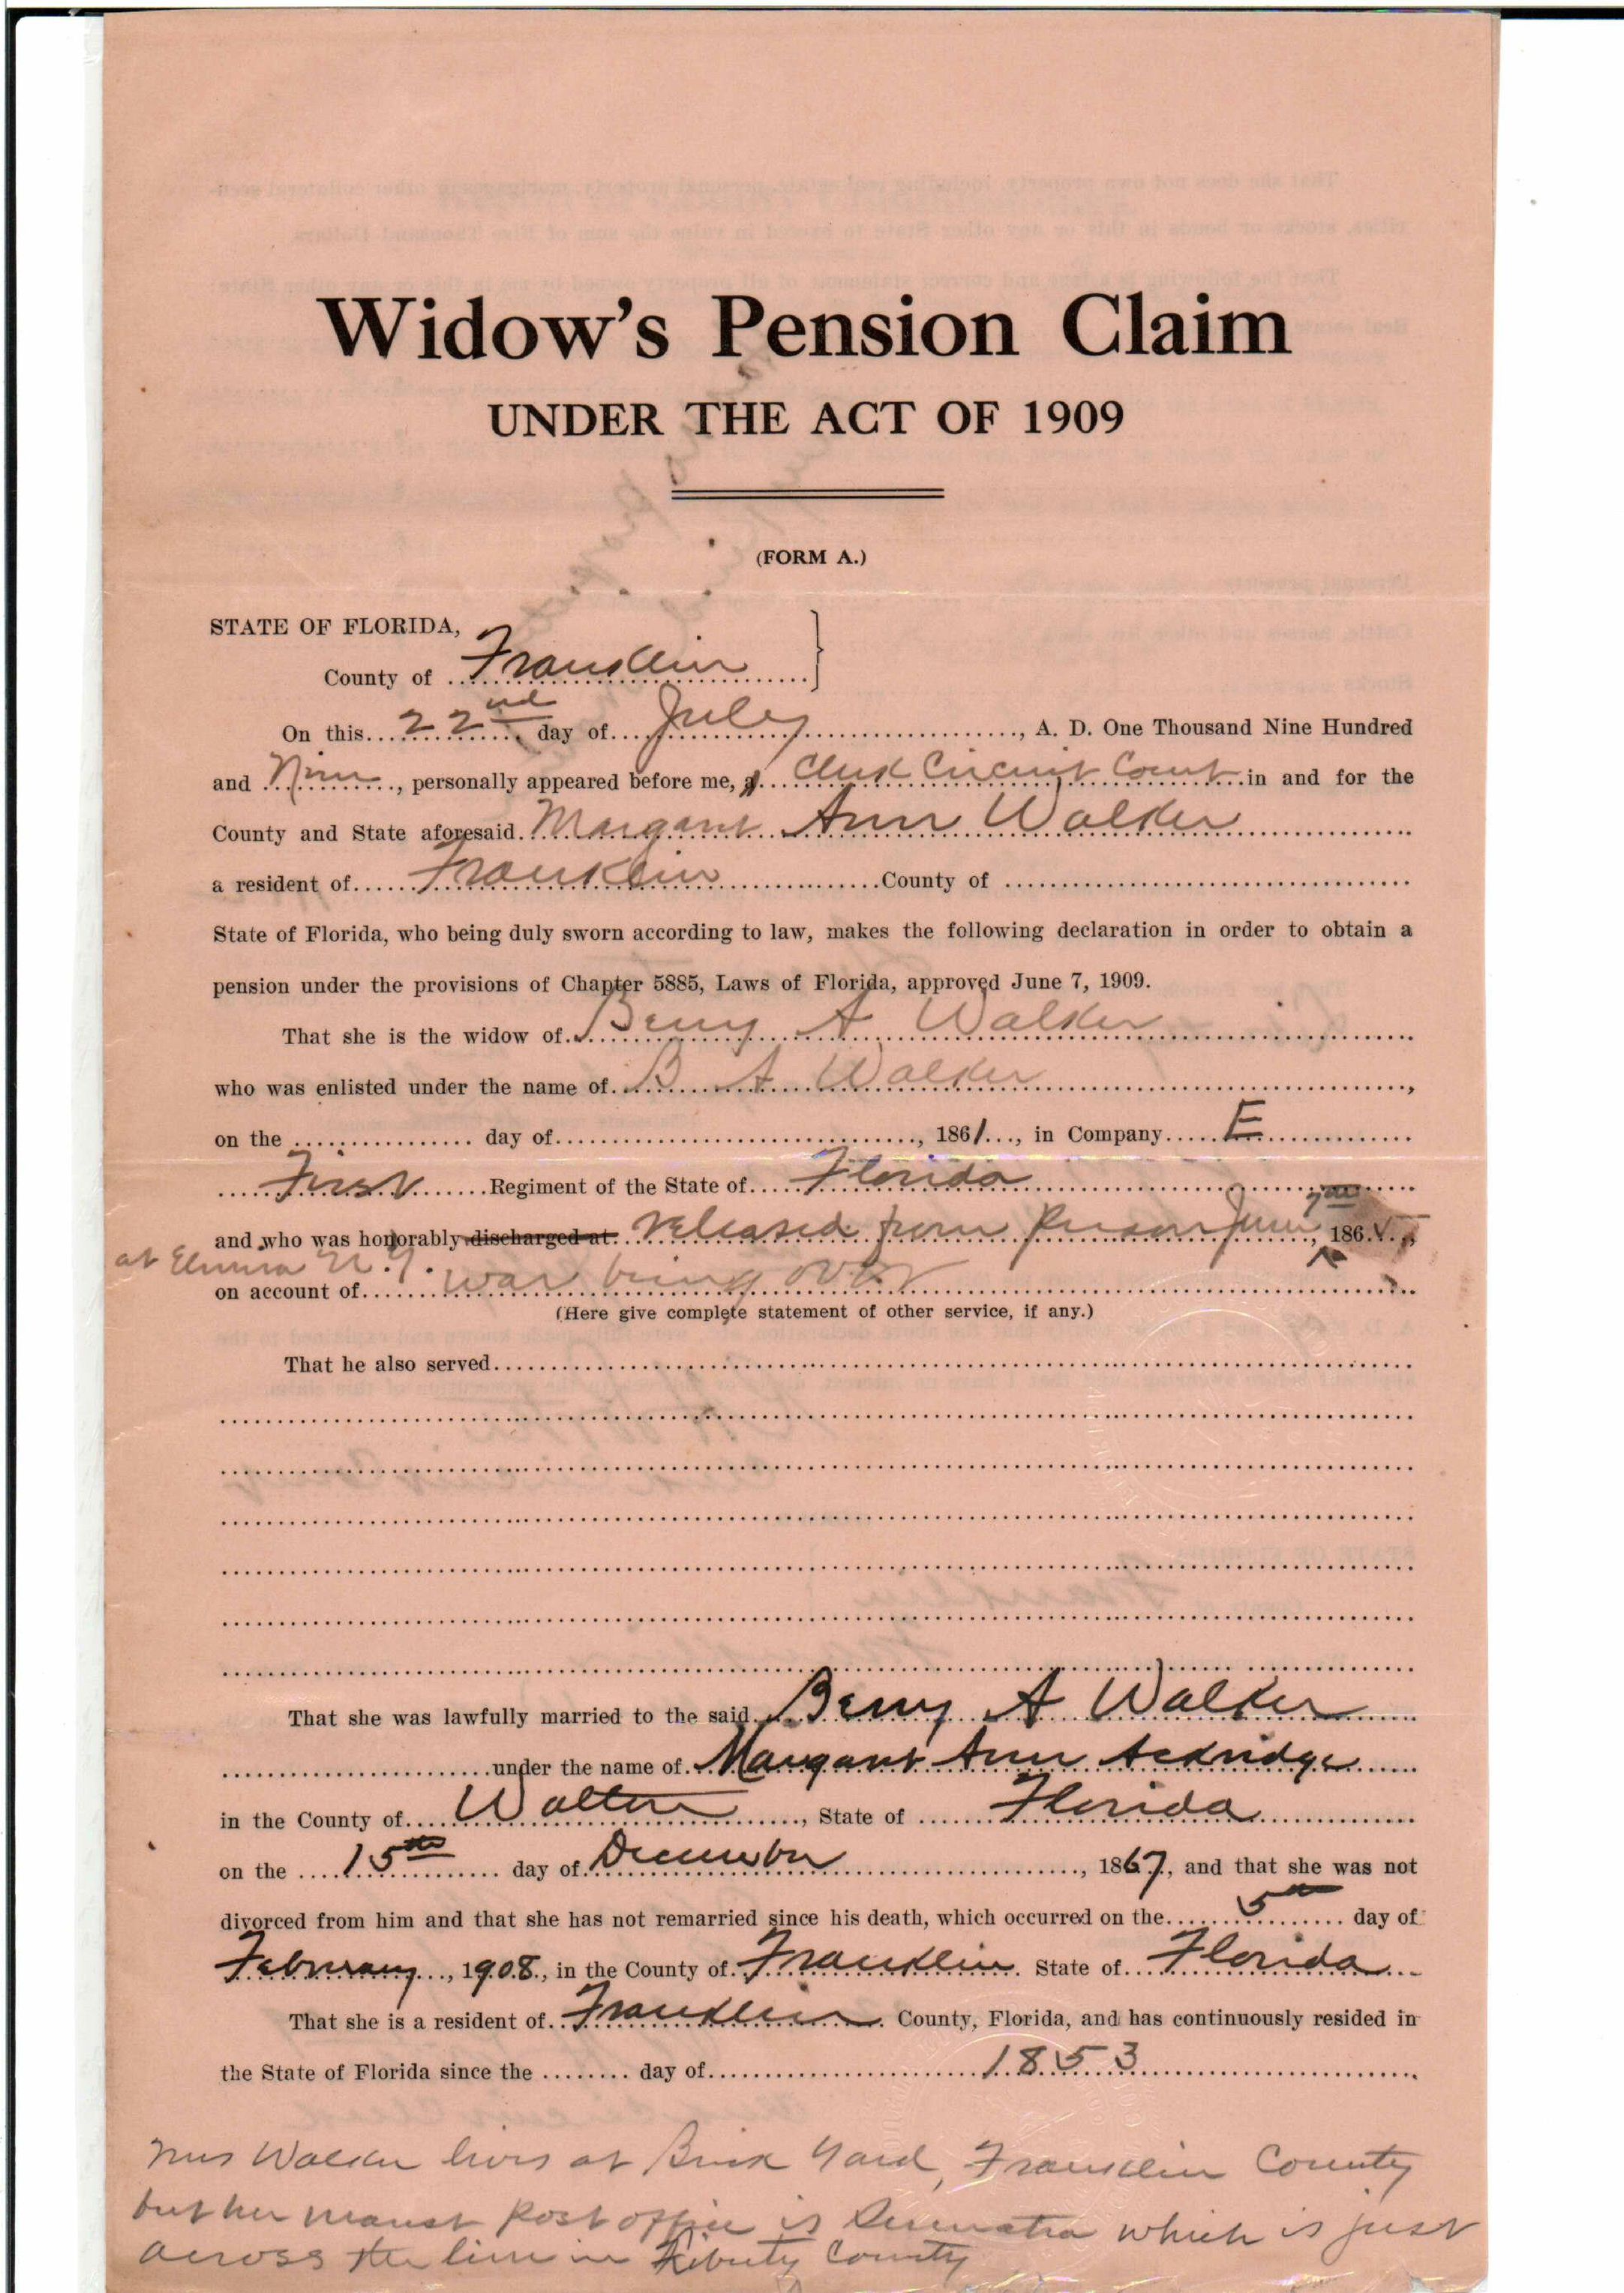 Widow's Pension Claim
UNDER THE ACT OF 1909
(FORM A.)
STATE OF FLORIDA,
County of Franklin
On this 22nd day of July, A. D. One Thousand Nine Hundred
and Nine, personally appeared before me, a Clerk Circuit Court in and for the
County and State aforesaid Margaret Ann Walker
a resident of Franklin County of
State of Florida, who being duly sworn according to law, makes the following declaration in order to obtain a
pension under the provisions of Chapter 5885, Laws of Florida, approved June 7, 1909.
That she is the widow of Berry A Walker
who was enlisted under the name of B A Walker,
on the day of, 1861, in Company E
First Regiment of the State of Florida
and who was honorably discharged at released from Prison June 7th, 186
at Elmira N.Y.
on account of war being over
(Here give complete statement of other service, if any.)
That he also served
That she was lawfully married to the said Berry A Walker
under the name of Margaret Ann
in the County of Walton, State of Florida
on the 15th day of December, 1867, and that she was not
divorced from him and that she has not remarried since his death, which occurred on the 5th day of
February, 1908, in the County of Franklin State of Florida
That she is a resident of Franklin County, Florida, and has continuously resided in
the State of Florida since the day of 1853
Mrs Walker lives at Brick Yard, Franklin County
but her nearest Post office is which is just
across the line in Liberty County